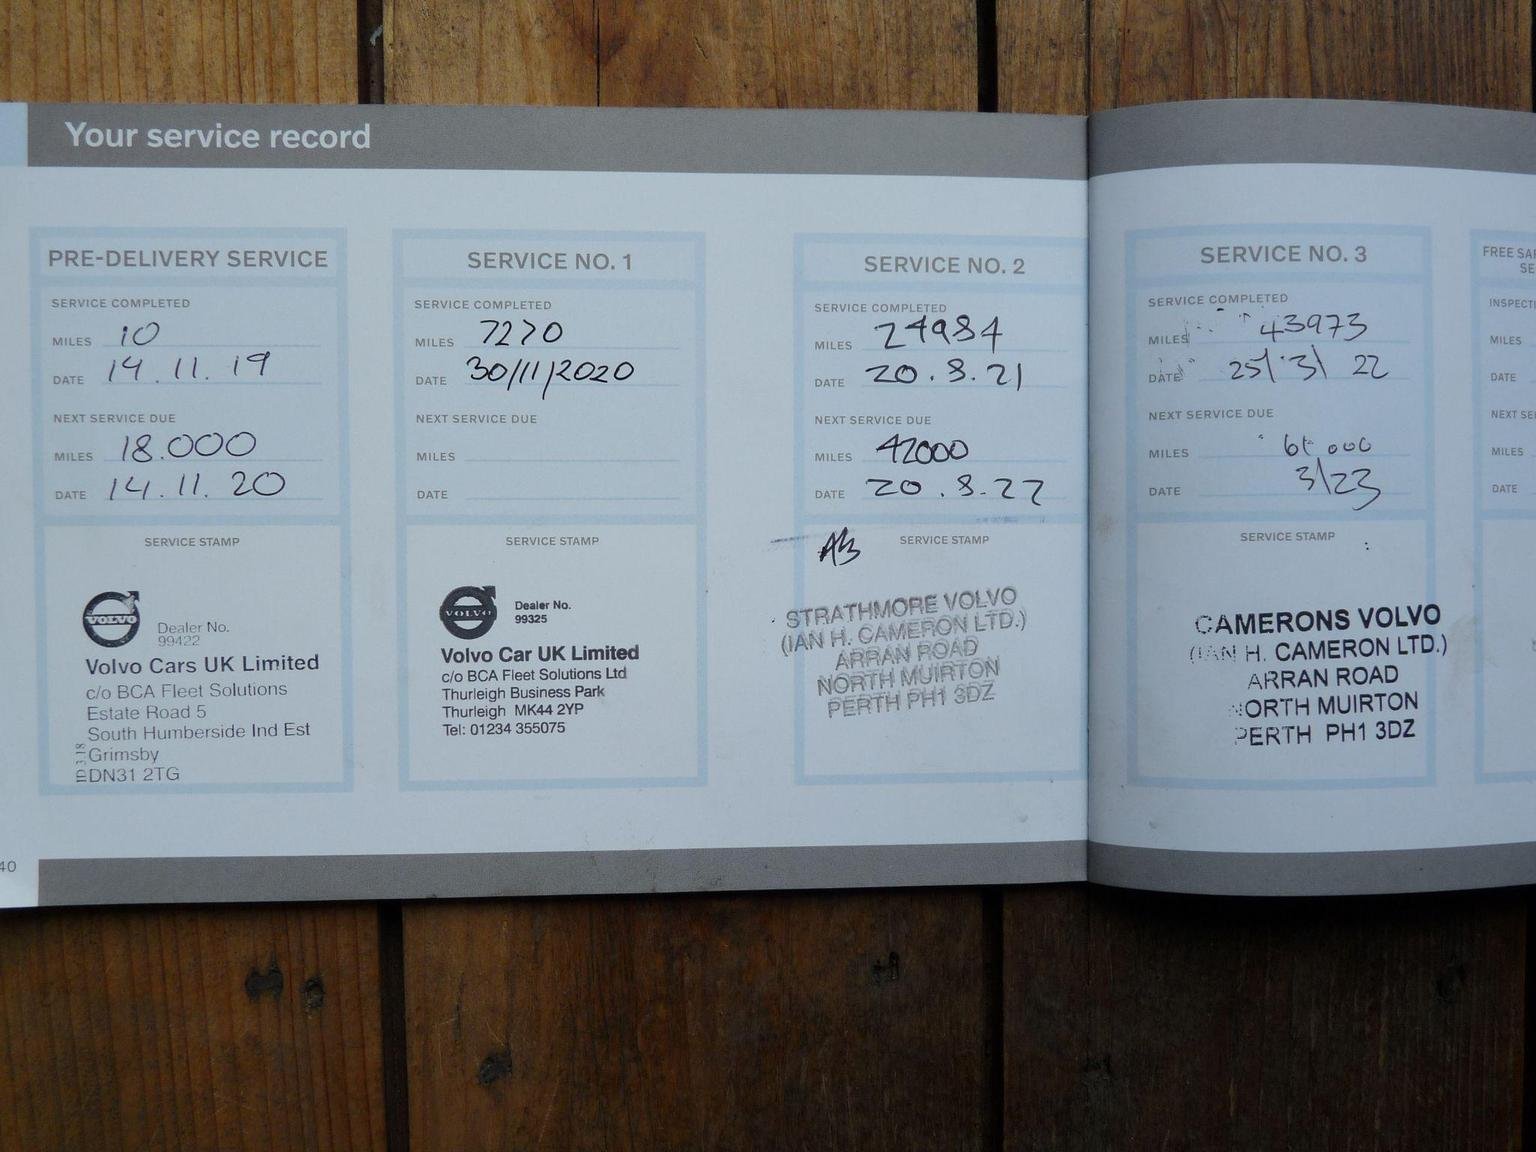 Your service record
PRE-DELIVERY SERVICE
SERVICE COMPLETED
MILES 10
DATE 14.11.19
NEXT SERVICE DUE
MILES 18.000
DATE 14.11.20
SERVICE STAMP
VOLVO
Dealer No.
99422
Volvo Cars UK Limited
c/o BCA Fleet Solutions
Estate Road 5
South Humberside Ind Est
Grimsby
DN31 2TG
SERVICE NO. 1
SERVICE COMPLETED
MILES 7270
DATE 30/11/2020
NEXT SERVICE DUE
MILES
DATE
SERVICE STAMP
VOLVO
Dealer No.
99325
Volvo Car UK Limited
c/o BCA Fleet Solutions Ltd
Thurleigh Business Park
Thurleigh MK44 2YP
Tel: 01234 355075
SERVICE NO. 2
SERVICE COMPLETED
MILES 24984
DATE 20.8.21
NEXT SERVICE DUE
MILES 42000
DATE 20.8.22
SERVICE STAMP
STRATHMORE VOLVO
(IAN H. CAMERON LTD.)
ARRAN ROAD
NORTH MUIRTON
PERTH PH1 3DZ
SERVICE NO. 3
SERVICE COMPLETED
MILES 43973
DATE 25/3/22
NEXT SERVICE DUE
MILES
DATE 3/23
SERVICE STAMP
CAMERONS VOLVO
(IAN H. CAMERON LTD.)
ARRAN ROAD
NORTH MUIRTON
PERTH PH1 3DZ
FREE
SE
MILES
DATE
MILES
DATE
40